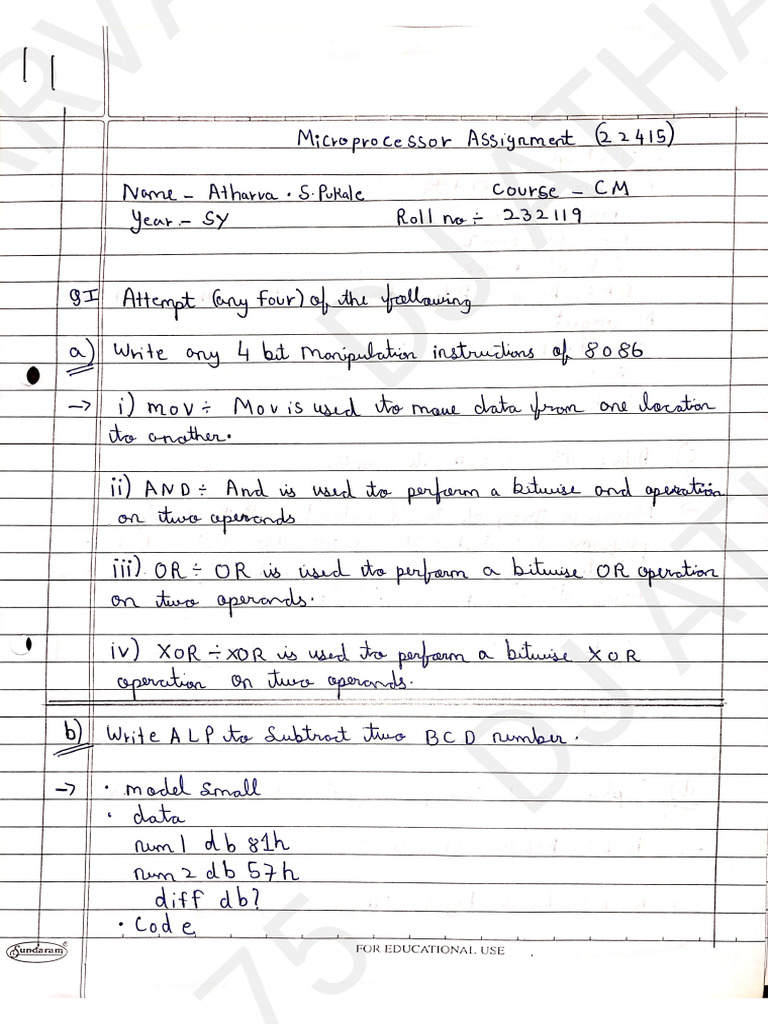 Microprocessor Assignment (22415)
Name - Atharva . S. Pukale Course - CM
Year - SY Roll no ÷ 232119
QI Attempt (any four) of the following
a) Write any 4 bit manipulation instructions of 8086
→ i) mov ÷ Mov is used to move data from one location
to another.
ii) AND ÷ And is used to perform a bitwise and operation
on two operands
iii) OR ÷ OR is used to perform a bitwise OR operation
on two operands.
iv) XOR ÷ XOR is used to perform a bitwise XOR
operation on two operands.
b) Write ALP to Subtract two BCD number.
→ . model small
. data
num 1 db 81h
num 2 db 57h
diff db?
. Code
Sundaram®
FOR EDUCATIONAL USE
DJ ATHARVA
75